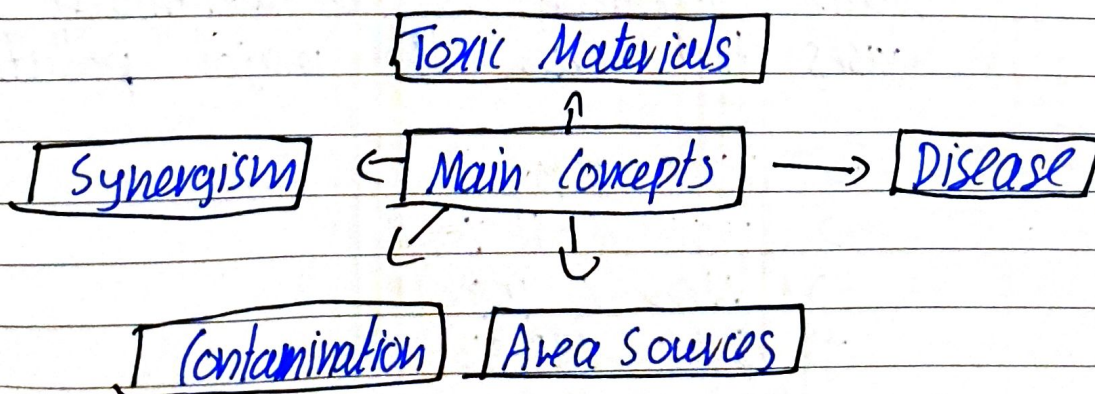 Toxic Materials
Synergism Main Concepts Disease
Contamination Area Sources